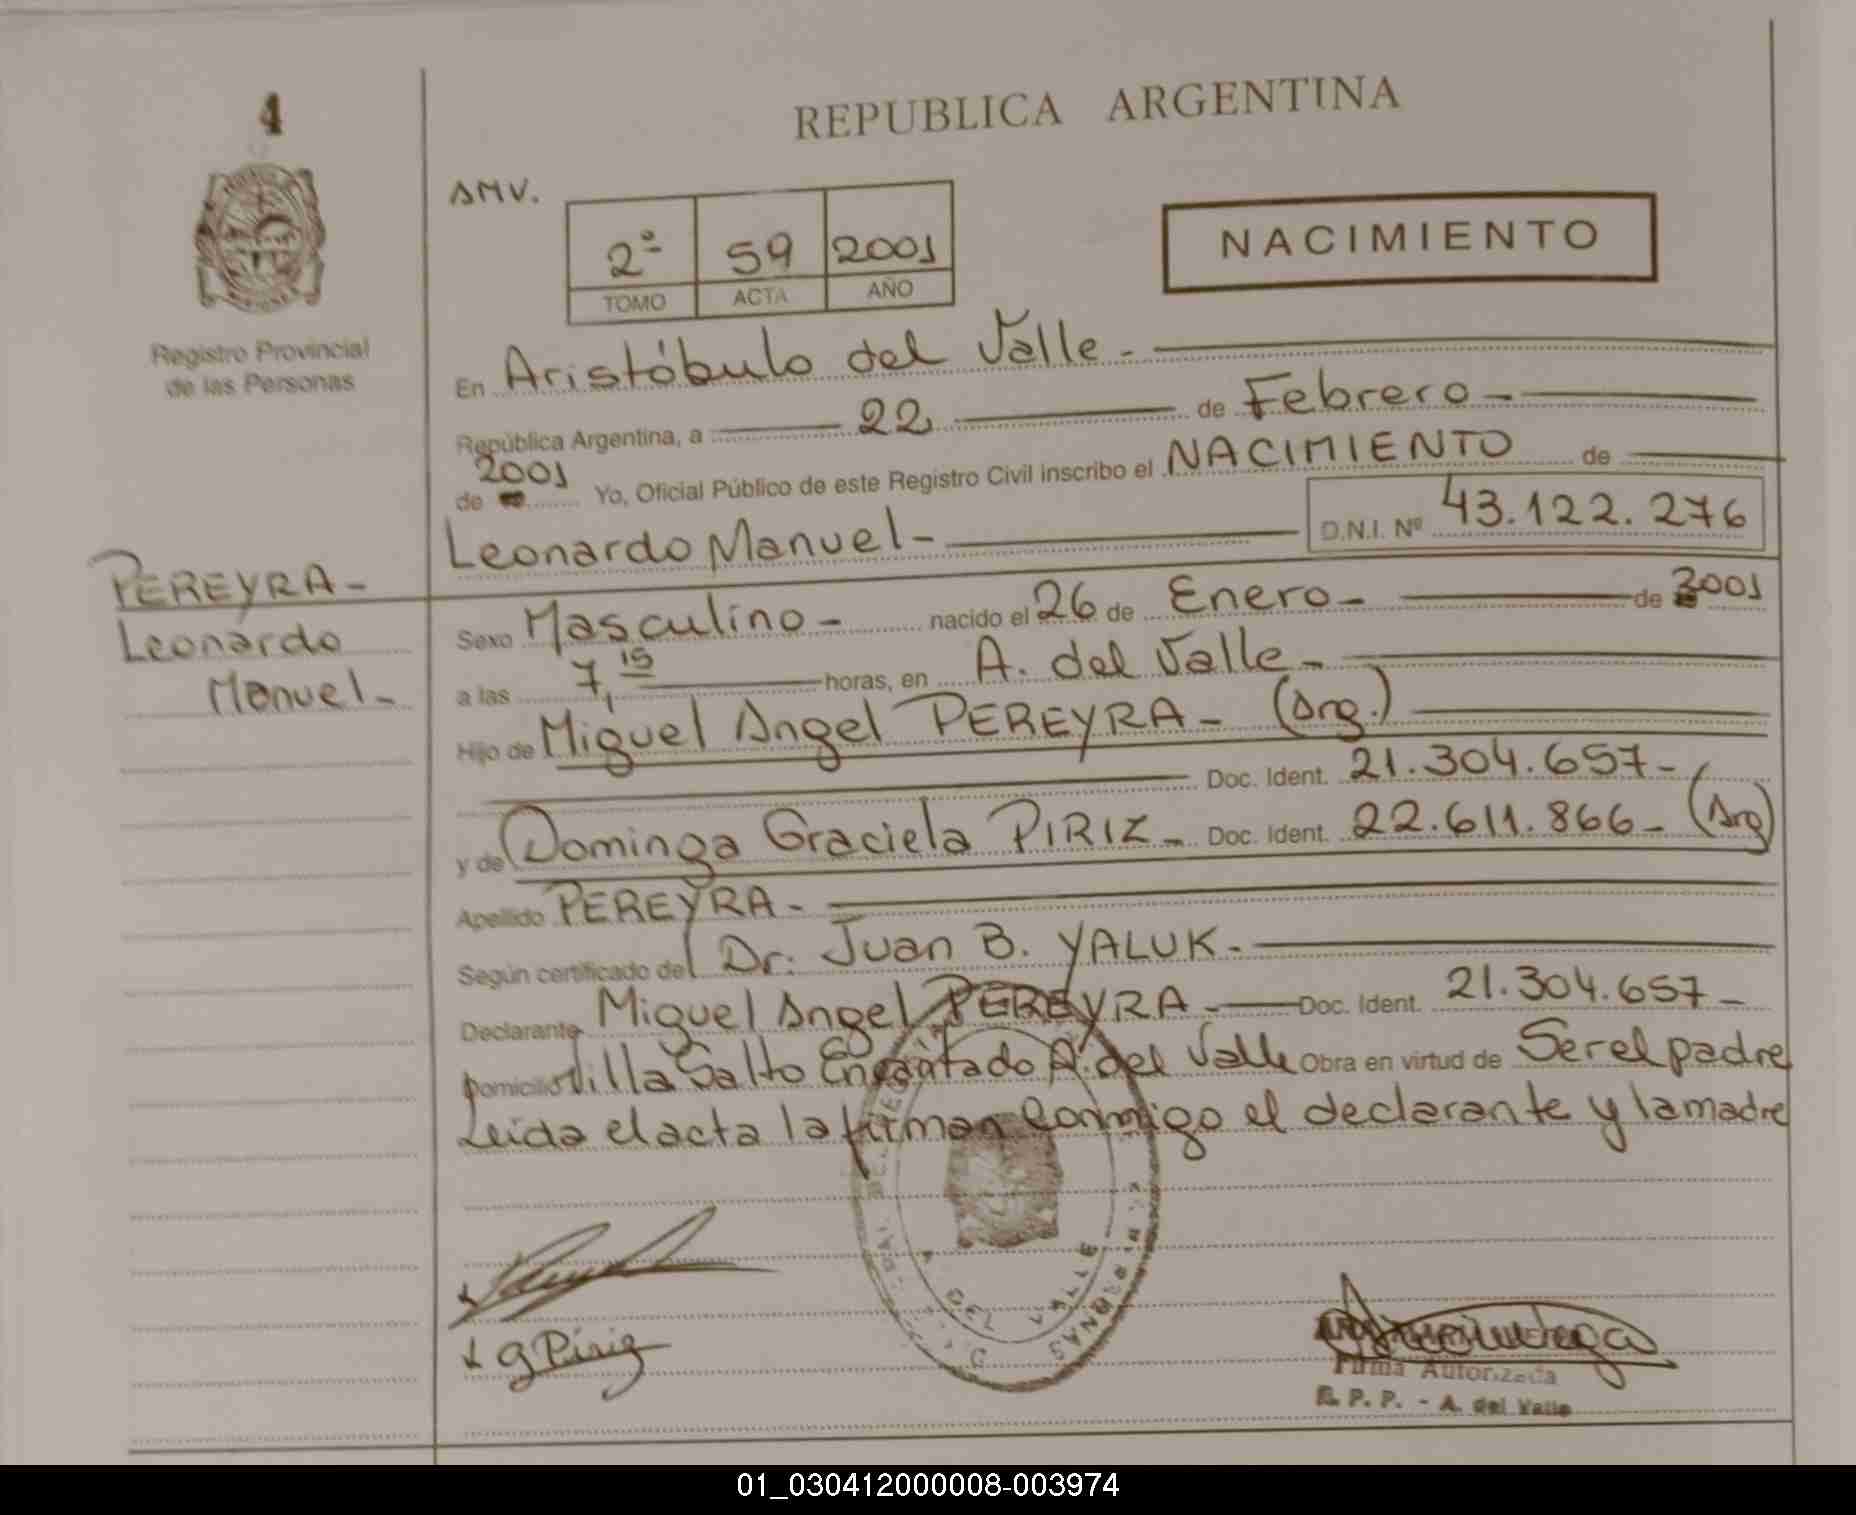 4
REPUBLICA ARGENTINA
AMV.
2º 59 2001
TOMO ACTA AÑO
NACIMIENTO
Registro Provincial
de las Personas
En Aristóbulo del Valle -
República Argentina, a 22 de Febrero -
de 2001 Yo, Oficial Público de este Registro Civil inscribo el NACIMIENTO de
Leonardo Manuel - D.N.I. Nº 43.122.276
PEREYRA -
Leonardo
Manuel -
Sexo Masculino - nacido el 26 de Enero - de 2001
a las 7,15 horas, en A. del Valle -
Hijo de Miguel Angel PEREYRA - (Arg.)
Doc. Ident. 21.304.657 -
y de Dominga Graciela PIRIZ - Doc. Ident. 22.611.866 - (Arg)
Apellido PEREYRA -
Según certificado del Dr. Juan B. YALUK -
Declarante Miguel Angel PEREYRA - Doc. Ident. 21.304.657 -
Domicilio Villa Salto Encantado A. del Valle Obra en virtud de Ser el padre
Leida el acta la firman conmigo el declarante y la madre
DEL VALLE
g Piriz
Firma Autorizada
R. P. P. - A. del Valle
01_030412000008-003974